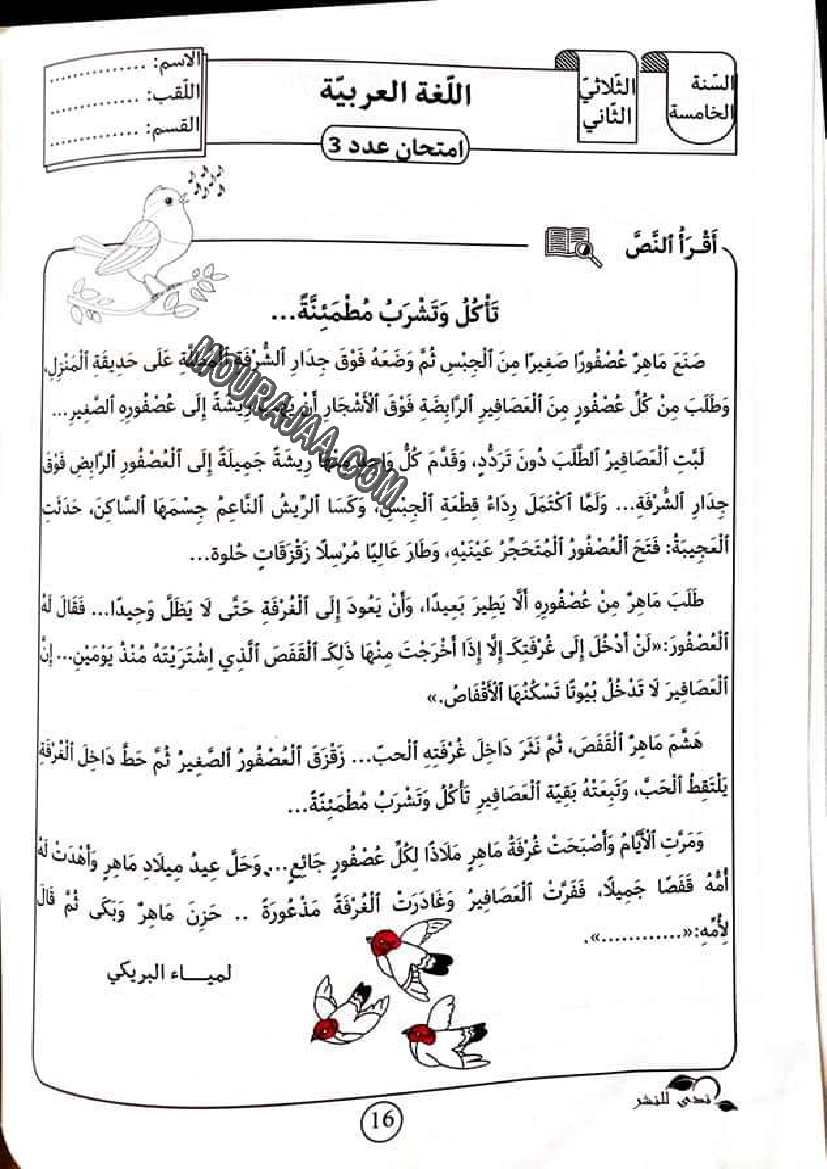 السّنة
الخامسة
الثّلاثيّ
الثّاني
اللّغة العربيّة
امتحان عدد 3
الاسم: ................
اللّقب: ................
القسم: ................
أَقْرَأُ ٱلنَّصَّ
تَأْكُلُ وَتَشْرَبُ مُطْمَئِنَّةً...
صَنَعَ مَاهِرٌ عُصْفُورًا صَغِيرًا مِنَ ٱلْجِبْسِ ثُمَّ وَضَعَهُ فَوْقَ جِدَارِ ٱلشُّرْفَةِ ٱلْمُطِلَّةِ عَلَى حَدِيقَةِ ٱلْمَنْزِلِ،
وَطَلَبَ مِنْ كُلِّ عُصْفُورٍ مِنَ ٱلْعَصَافِيرِ ٱلرَّابِضَةِ فَوْقَ ٱلْأَشْجَارِ أَنْ يَهَبَ رِيشَةً إِلَى عُصْفُورِهِ ٱلصَّغِيرِ...
لَبَّتِ ٱلْعَصَافِيرُ ٱلطَّلَبَ دُونَ تَرَدُّدٍ، وَقَدَّمَ كُلُّ وَاحِدٍ مِنْهَا رِيشَةً جَمِيلَةً إِلَى ٱلْعُصْفُورِ ٱلرَّابِضِ فَوْقَ
جِدَارِ ٱلشُّرْفَةِ... وَلَمَّا ٱكْتَمَلَ رِدَاءُ قِطْعَةِ ٱلْجِبْسِ، وَكَسَا ٱلرِّيشُ ٱلنَّاعِمُ جِسْمَهَا ٱلسَّاكِنَ، حَدَثَتِ
ٱلْعَجِيبَةُ: فَتَحَ ٱلْعُصْفُورُ ٱلْمُتَحَجِّرُ عَيْنَيْهِ، وَطَارَ عَالِيًا مُرْسِلًا زَقْزَقَاتٍ حُلوة...
طَلَبَ مَاهِرٌ مِنْ عُصْفُورِهِ أَلَّا يَطِيرَ بَعِيدًا، وَأَنْ يَعُودَ إِلَى ٱلْغُرْفَةِ حَتَّى لَا يَظَلَّ وَحِيدًا... فَقَالَ لَهُ
ٱلْعُصْفُورُ:«لَنْ أَدْخُلَ إِلَى غُرْفَتِكَ إِلَّا إِذَا أَخْرَجْتَ مِنْهَا ذَلِكَ ٱلْقَفَصَ ٱلَّذِي اِشْتَرَيْتَهُ مُنْذُ يَوْمَيْنِ... إِنَّ
ٱلْعَصَافِيرَ لَا تَدْخُلُ بُيُوتًا تَسْكُنُهَا ٱلْأَقْفَاصُ.»
هَشَّمَ مَاهِرٌ ٱلْقَفَصَ، ثُمَّ نَثَرَ دَاخِلَ غُرْفَتِهِ ٱلْحبّ... زَقْزَقَ ٱلْعُصْفُورُ ٱلصَّغِيرُ ثُمَّ حَطَّ دَاخِلَ ٱلْغُرْفَةِ
يَلْتَقِطُ ٱلْحَبَّ، وَتَبِعَتْهُ بَقِيَّة ٱلْعَصَافِيرِ تَأْكُلُ وَتَشْرَبُ مُطْمَئِنَّةً...
وَمَرَّتِ ٱلْأَيَّامُ وَأَصْبَحَتْ غُرْفَةُ مَاهِرٍ مَلَاذًا لِكُلِّ عُصْفُورٍ جَائِعٍ... وَحَلَّ عِيدُ مِيلَادِ مَاهِرٍ وَأَهْدَتْ لَهُ
أُمُّهُ قَفَصًا جَمِيلًا، فَفَرَّتْ ٱلْعَصَافِيرُ وَغَادَرَتْ ٱلْغُرْفَةَ مَذْعُورَةً .. حَزِنَ مَاهِرٌ وَبَكَى ثُمَّ قَالَ
لِأُمِّهِ:«............».
لميـــاء البريكي
ندى للنشر
16
MOURAJAA.COM